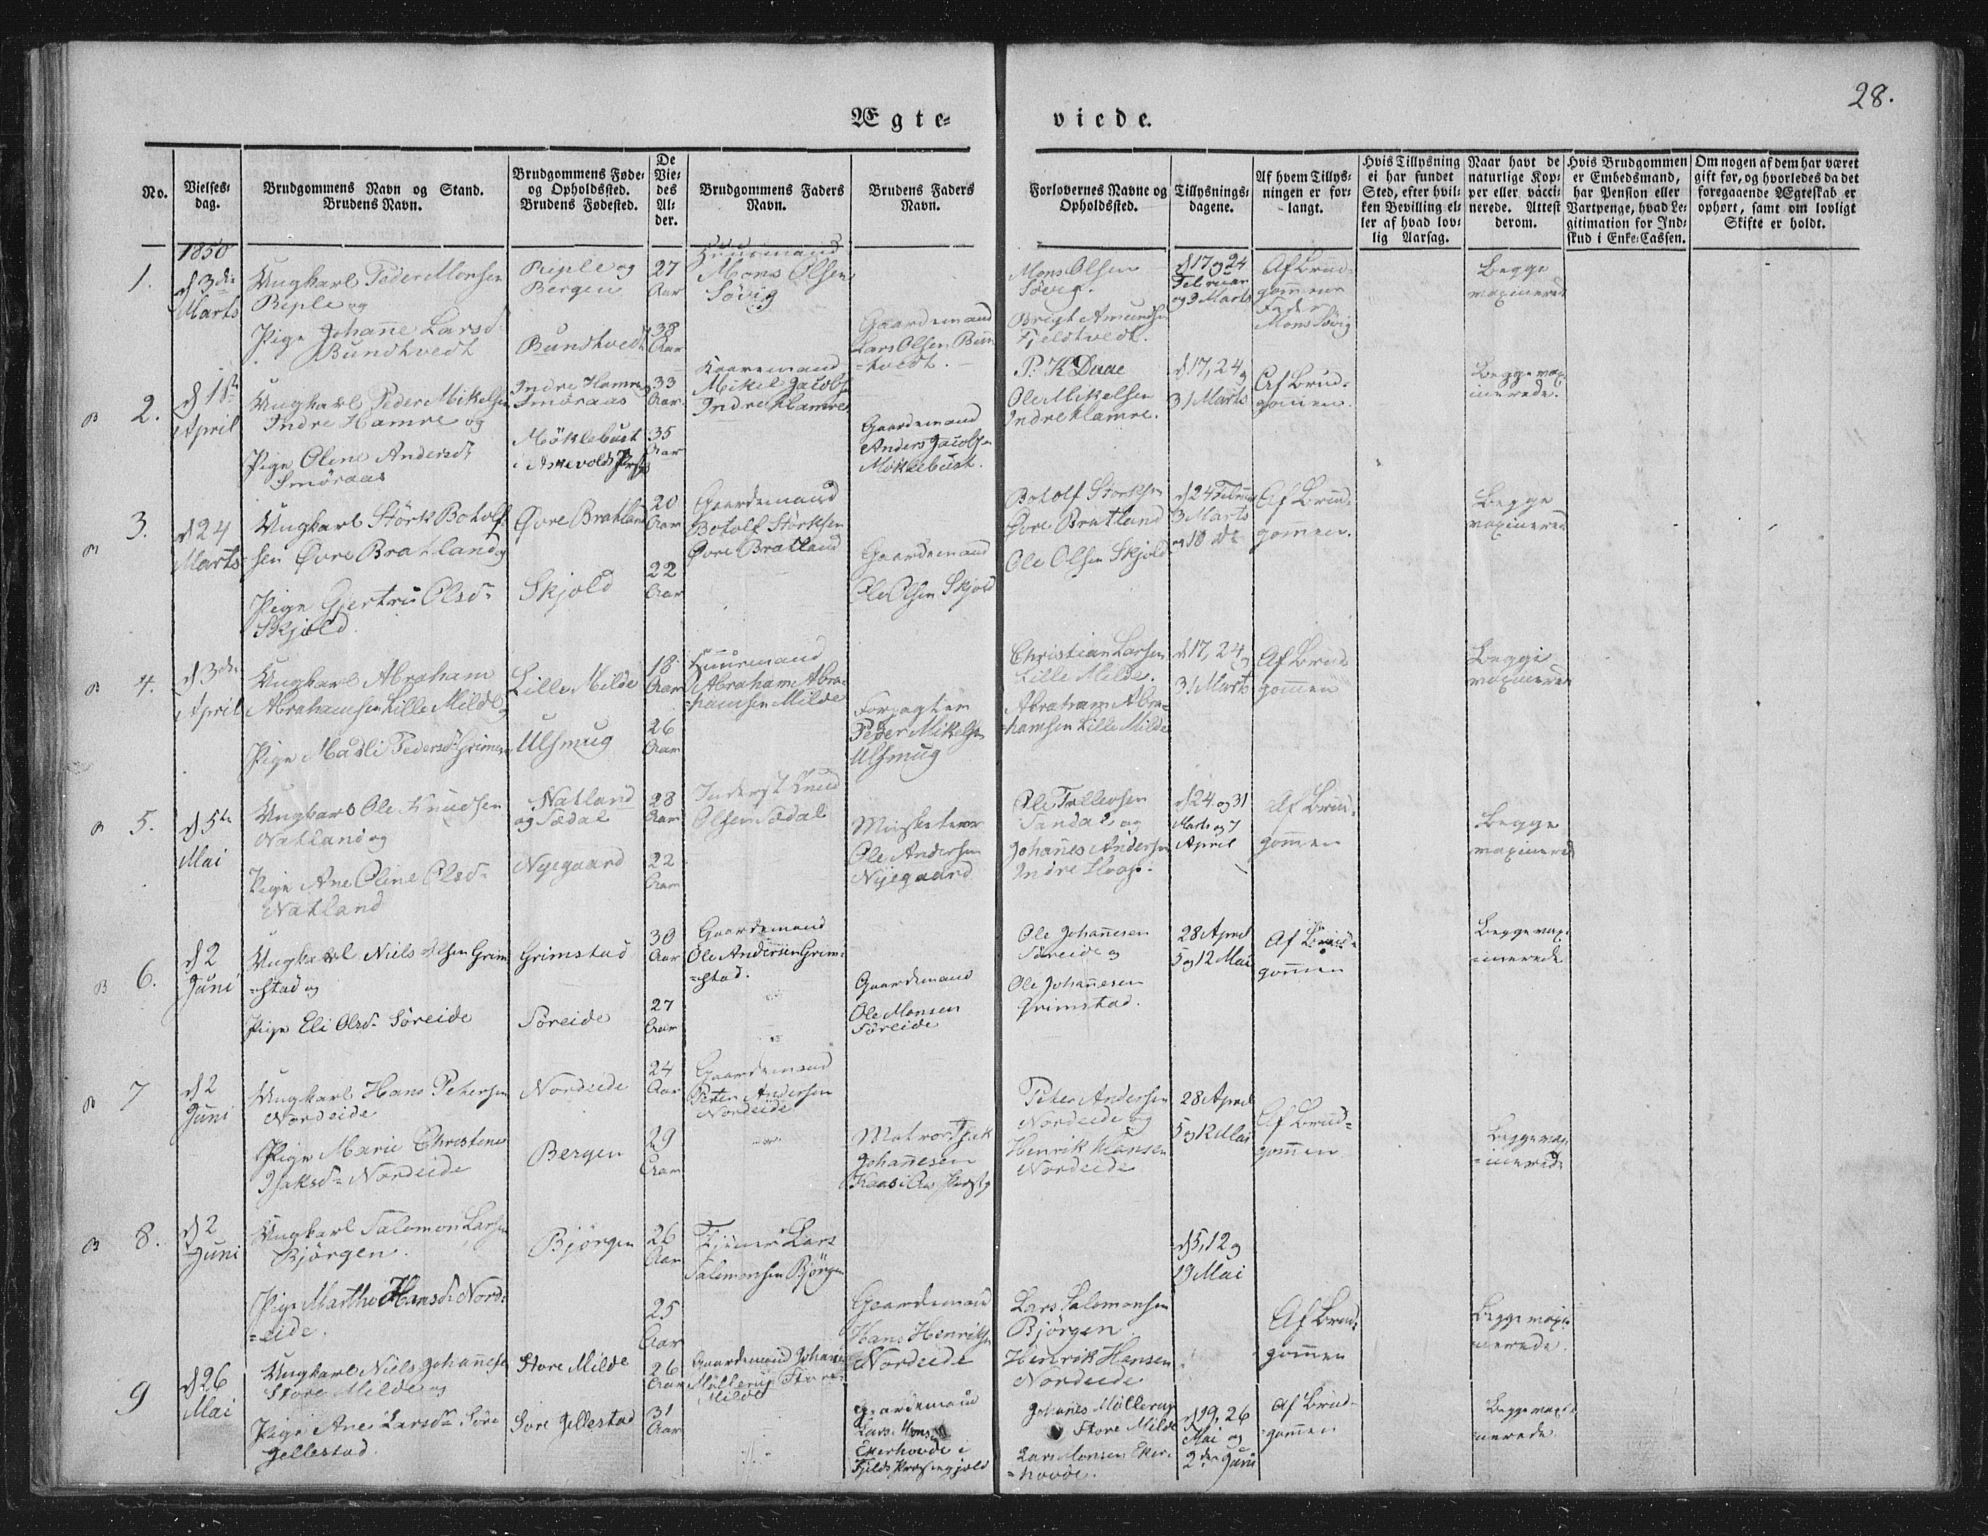 28.
Ægte-
viede.
No.
Vielses-
dag.
Brudgommens Navn og Stand.
Brudens Navn.
Brudgommens Føde-
og Opholdssted.
Brudens Fødested.
De
Vie-
des
Al-
der.
Brudgommens Faders
Navn.
Brudens Faders
Navn.
Forlovernes Navne og
Opholdssted.
Tillysnings-
dagene.
Af hvem Tillys-
ningen er for-
langt.
Hvis Tillysning
ei har fundet
Sted, efter hvil-
ken Bevilling el-
ler af hvad lov-
lig Aarsag.
Naar havt de
naturlige Kop-
per eller vacci-
nerede. Attest
derom.
Hvis Brudgommen
er Embedsmand,
har Pension eller
Vartpenge, hvad Le-
gitimation for Ind-
skud i Enke-Cassen.
Om nogen af dem har været
gift før, og hvorledes da det
foregaaende Ægteskab er
ophørt, samt om lovligt
Skifte er holdt.
1850
1.
d 3die
Marts
Ungkarl Peder Monsen
Riple og
Pige Johanne Larsd.
Bundtvedt
Riple og
Bergen
Bundtvedt
27
Aar
38
Aar
Huusmand
Mons Olsen
Søvig
Gaardemand
Lars Olsen Bun-
tvedt.
Mons Olsen
Søvig.
Brigt Amundsen
Fjeldtvedt.
d 17 og 24
Februar
og 3 Marts
Af Brud-
gommens
Fader
Mons Søvig
Begge
vaxinerede
B 2.
d 1ste
April
Ungkarl Peder Mikelsen
Indre Hamre og
Pige Oline Andersd.
Smøraas
Indre Hamre
Smøraas
Møklebust
33
Aar
35
Aar
Gaardemand
Mikel Jacobsen
Indre Hamre
Gaardemand
Anders Jacobsen
Møklebust.
P. K. Duae
Ole Mikelsen
Indre Hamre.
d 17, 24 og
31 Marts
Af Brud-
gommen.
Begge vaxi-
nerede.
B 3.
d 24
Marts
Ungkarl Størk Botolf-
sen Øvre Bratland og
Pige Gjertru Olsd.
Skjold
Øvre Bratland
Skjold
20
Aar
22
Aar
Gaardemand
Botolf Størksen
Øvre Bratland
Gaardemand
Ole Olsen Skjold
Botolf Størksen
Øvre Bratland
Ole Olsen Skjold
d 24 Februar
3 Marts
og 10 de
Af Brud-
gommen.
Begge
vaxinerede
B 4.
d 3die
April
Ungkarl Abraham
Abrahamsen Lille Milde og
Pige Madli Pedersd. Grimen
Lille Milde
Ulsmug
18
Aar
26
Aar
Huusmand
Abraham Abra-
hamsen Milde
Forpagter
Peder Mikelsen
Ulsmug
Christian Larsen
Lille Milde.
Abraham Abra-
hamsen Lille Milde
d 17, 24 og
31 Marts
Af Brud-
gommen
Begge
vaxinerede
B 5.
d 5te
Mai
Ungkarl Ole Knudsen
Natland og
Pige Ane Oline Olsd.
Natland
Natland
og Sædal
Nyegaard
28
Aar
22
Aar
Inderst Knud
Olsen Sædal
Musketeer
Ole Andersen
Nyegaard
Ole Tollevsen
Sandal og
Johannes Andersen
Indre Houge.
d 24 og 31
Marts og 7
April
Af Brud-
gommen
Begge
vaxinerede
B 6.
d 2
Juni
Ungkarl Niels Olsen Grim-
stad og
Pige Eli Olsd. Søreide
Grimstad
Søreide
30
Aar
27
Aar
Gaardemand
Ole Andersen Grim-
stad.
Gaardemand
Ole Monsen
Søreide
Ole Johannesen
Søreide og
Ole Johannesen
Grimstad.
28 April
5 og 12 Mai
Af Brud-
gommen
Begge vaxi-
nerede
B 7
d 2
Juni
Ungkarl Hans Petersen
Nordeide
Pige Marie Christine
Isaksd. Nordeide
Nordeide
Bergen
24
Aar
29
Aar
Gaardemand
Peter Andersen
Nordeide
Matros Isak
Johannesen
Peter Andersen
Nordeide og
Henrik Hansen
Nordeide
28 April
5 og 12 Mai
Af Brud-
gommen
Begge vaxi-
nerede
B 8.
d 2
Juni
Ungkarl Salomon Larsen
Bjørgen.
Pige Marthe Hansd. Nord-
eide.
Bjørgen
26
Aar
25
Aar
Lars
Salomonsen Bjørgen
Gaardemand
Hans Henriksen
Nordeide
Lars Salomonsen
Bjørgen
Henrik Hansen
Nordeide
d 5, 12 og
19 Mai
Af Brud-
gommen
Begge vaxi-
nerede.
9
d 26
Mai
Ungkarl Niels Johannesen
Store Milde og
Pige Ane Larsd. Søre
Gellestad.
Store Milde
Søre Gellestad
26
Aar
31
Aar
Gaardemand Johannes
Møllerup Store
Milde
Gaardemand
Lars Mons
Ekerhovde i
Fjelds Præstegjeld
Johannes Møllerup
Store Milde
Lars Monsen Eker-
hovde.
d 19, 26
Mai og
2den Juni
Af Brud-
gommen
Begge vaxi-
nerede